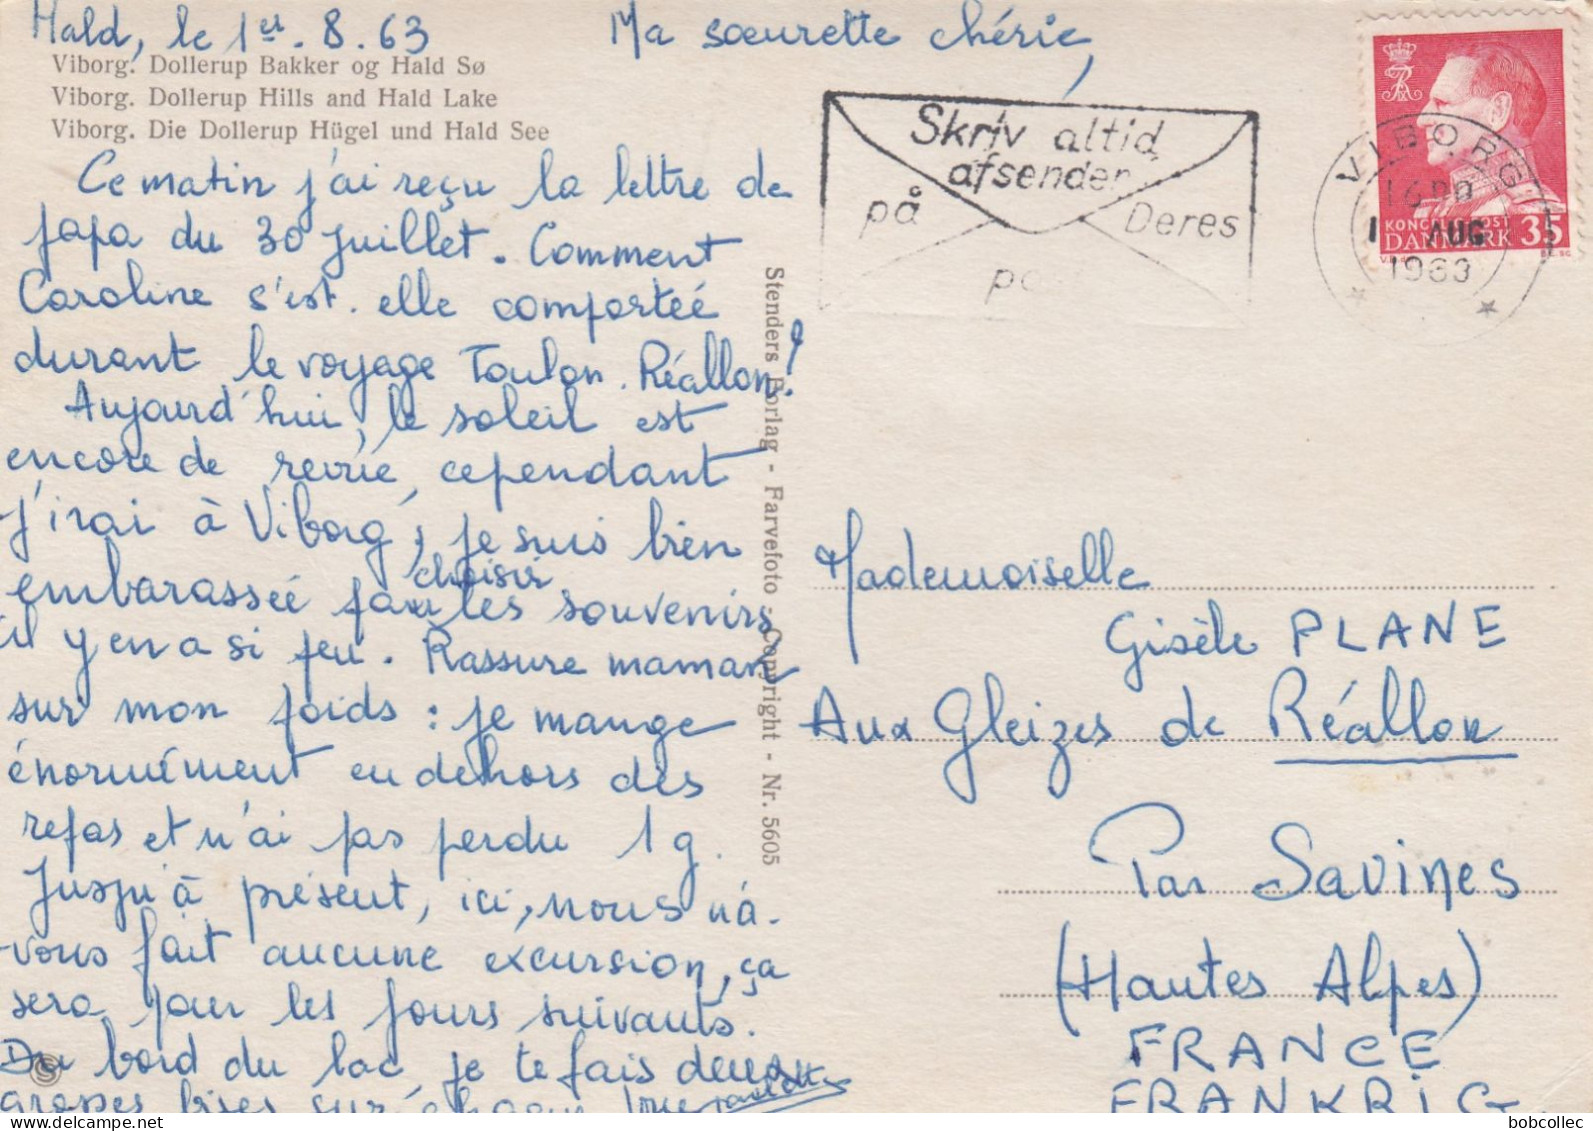 Hald, le 1er. 8. 63
Ma sœurette chérie,
Viborg. Dollerup Bakker og Hald Sø
Viborg. Dollerup Hills and Hald Lake
Viborg. Die Dollerup Hügel und Hald See
Ce matin j'ai reçu la lettre de
papa du 30 juillet. Comment
Caroline s'est. elle comporteé
durant le voyage Toulon. Réallon?
Aujourd'hui, le soleil est
encore de revue, cependant
j'irai à Viborg, je suis bien
choisir
embarasseé pour les souvenirs
il y en a si peu. Rassure maman
sur mon poids : je mange
énormément en dehors des
repas et n'ai pas perdu 1 g.
Jusqu'à présent, ici, nous n'a-
-vons fait aucune excursion, ça
sera pour les jours suivants.
Du bord du lac, je te fais deux
grosses bises sur chaque joue
Stenders Forlag - Farvefoto - Copyright - Nr. 5605
Skriv altid
afsender
på Deres
po
VIBORG
1 AUG
1963
KONGELIG POST
DANMARK 35
Mademoiselle
Gisèle PLANE
Aux Gleizes de Réallon
Par Savines
(Hautes Alpes)
FRANCE
FRANKRIG
bobcollec